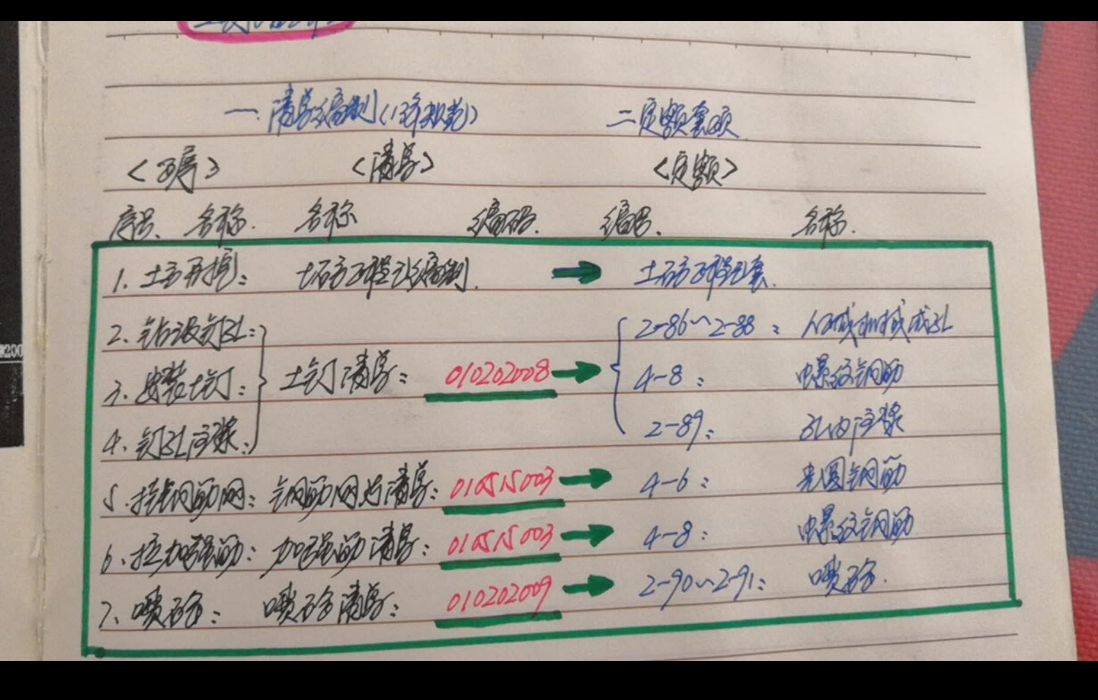 一. 清单编制(13年规范) 二定额套项
<工序> <清单> <定额>
序号. 名称. 名称 编码. 编号. 名称.
1. 土方开挖: 土石方工程已编制. 土石方工程已套.
2. 钻设钉孔: 2-86~2-88: 人工或机械成孔
3. 安装土钉: 土钉清单: 010202008 4-8: 螺纹钢筋
4. 钉孔注浆: 2-89: 孔内注浆
5. 挂钢筋网: 钢筋网片清单: 010515003 4-6: 光圆钢筋
6. 拉加强筋: 加强筋清单: 010515003 4-8: 螺纹钢筋
7. 喷砼: 喷砼清单: 010202009 2-90~2-91: 喷砼.
#200